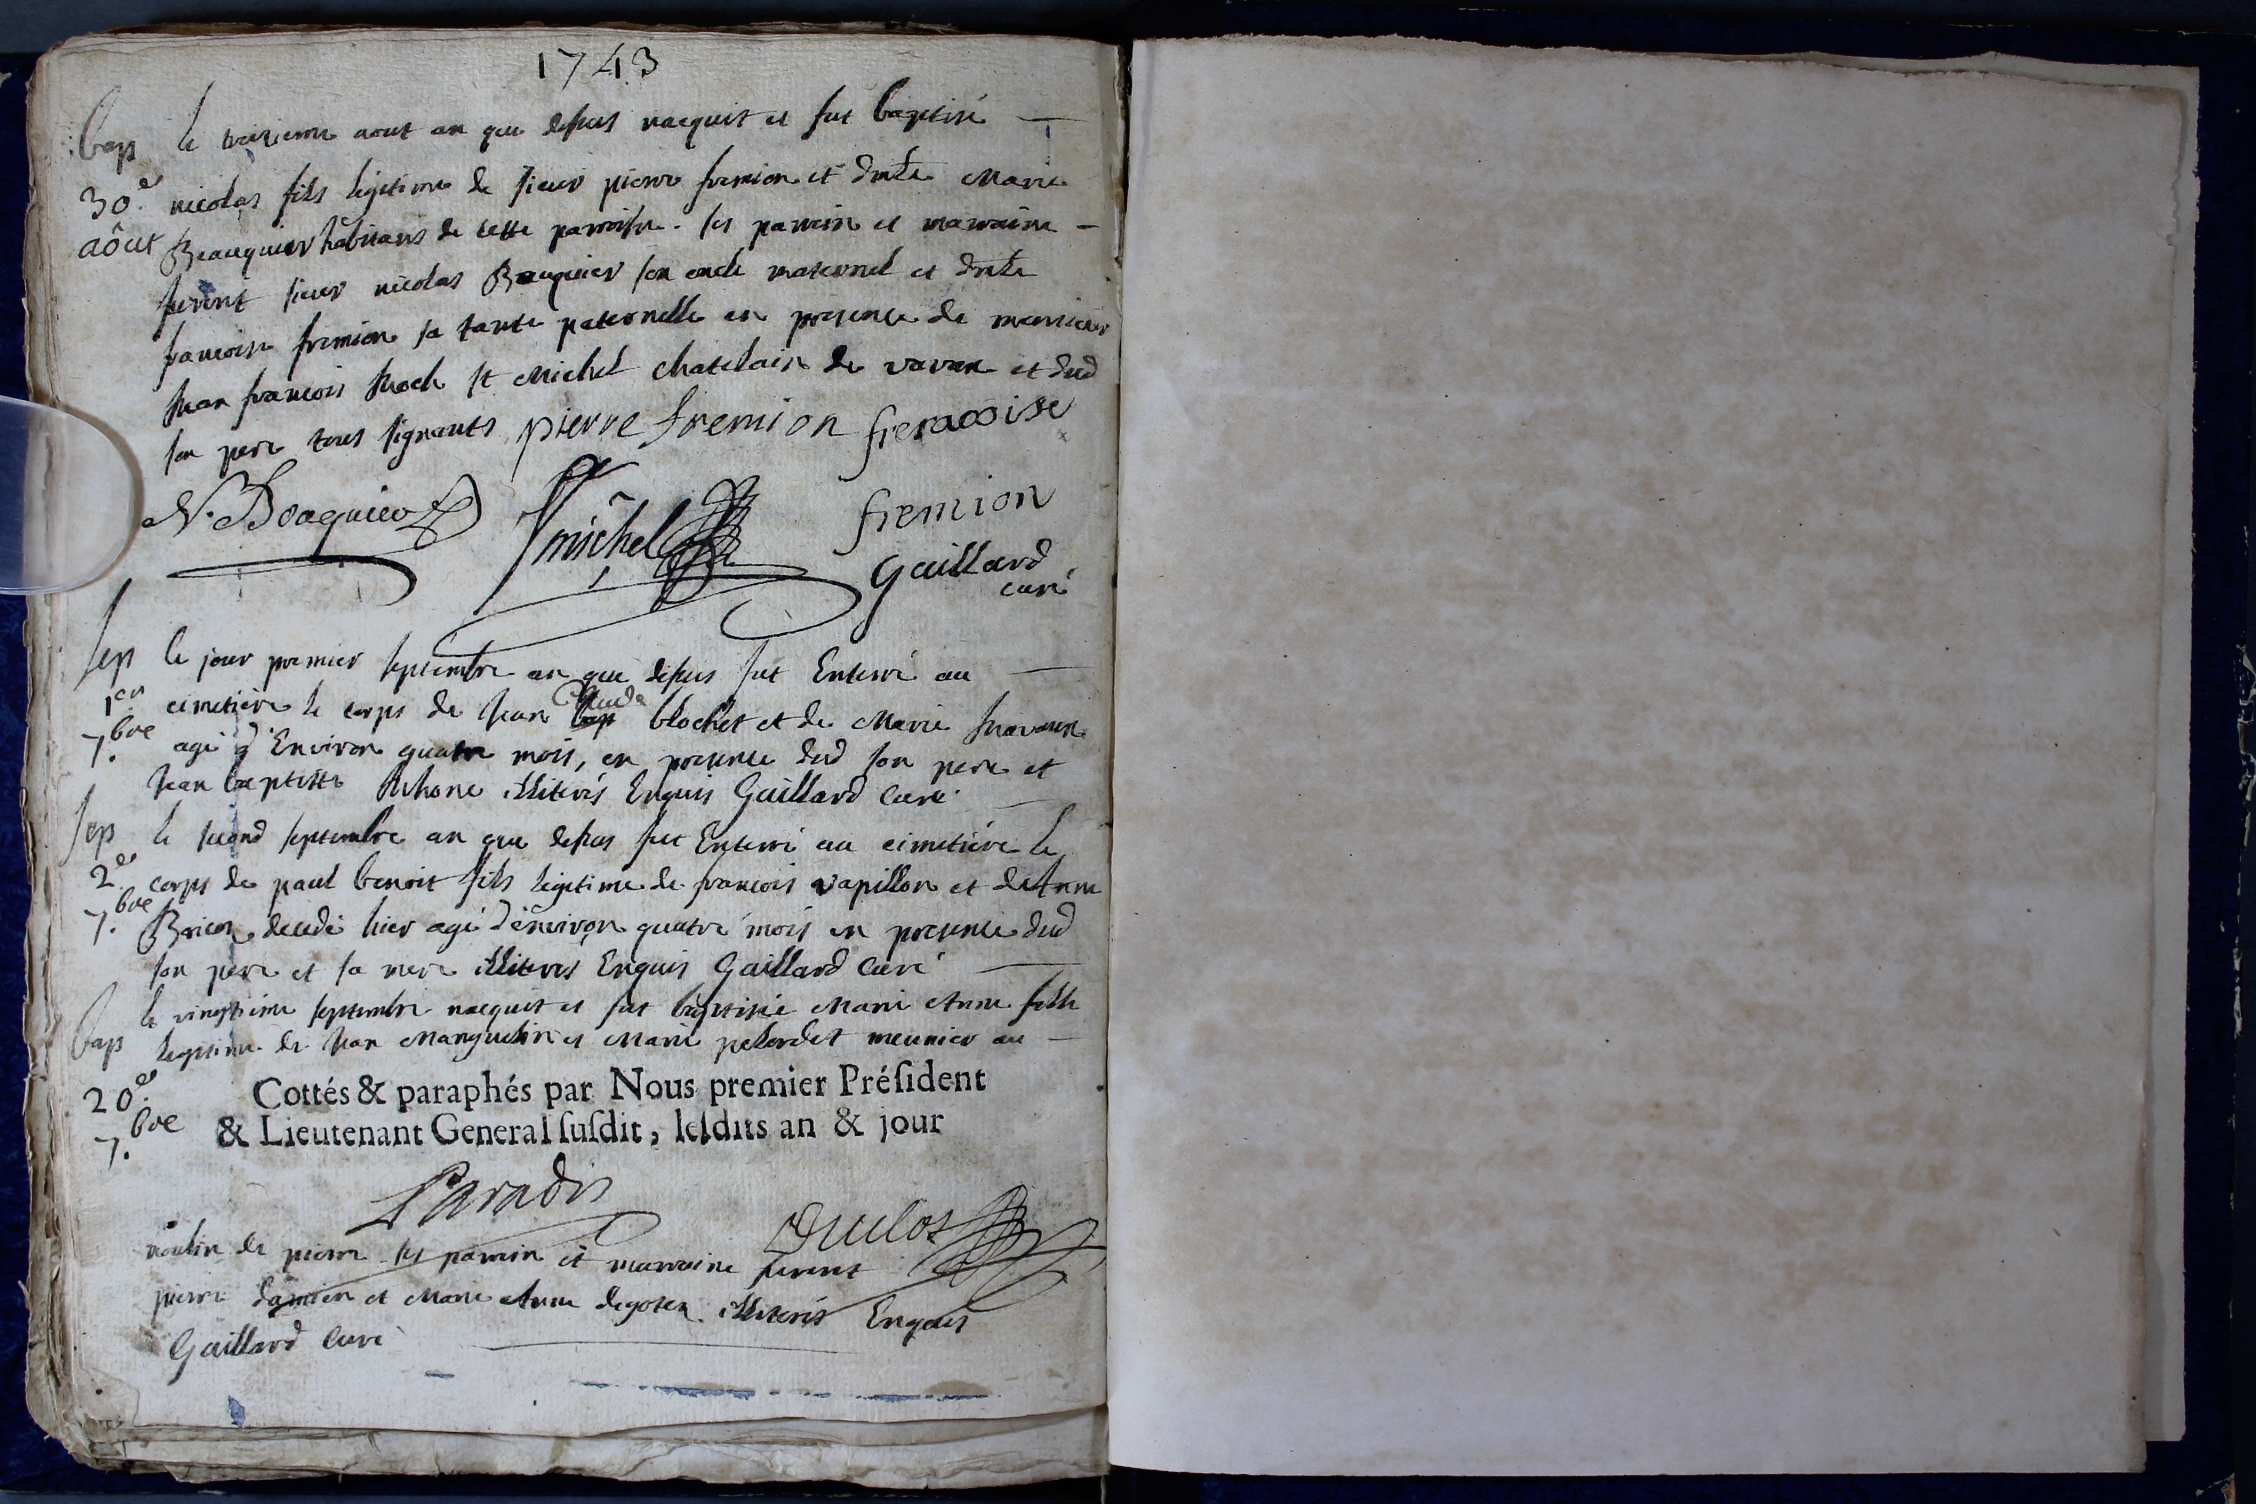 1743
bap le trentieme aout an que dessus nacquit et fut baptisé
30.e nicolas fils legitime de sieur pierre fremion et dmlle Marie
aôut Beauquier habitans de cette parroisse. ses parrein et marraine
furent sieur nicolas Bauquier son oncle maternel et dmlle
francoise fremion sa tante paternelle en presence de monsieur
Jean francois St Michel chatelain de et dud
son pere tous signants pierre fremion frencoise
N. Boaquier michel fremion
Gaillard
curé
sep le jour premier septembre an que dessus fut Enterré au
1er cimetière le corps de Jean Claude blochet et de Marie
7.bre agé d'Environ quatre mois, en presence dud son pere et
Jean baptiste illiterés Enquis Gaillard Curé
sep le second septembre an que dessus fut Enterré au cimetière le
2.e corps de paul benoit fils legitime de francois vapillon et de Anne
7.bre decedé hier agé d'environ quatre mois en presence dud
son pere et sa mere illiterés Enquis Gaillard Curé
le vingtieme septembre nacquit et fut baptisée Marie Anne fille
bap legitime de Jean Manguelin et Marie pelordet meunier au
20.e Cottés & paraphés par Nous premier Préſident
7.bre & Lieutenant General ſuſdit, leſdits an & jour
Paradis
Duclos
moulin de pierre ses parrein et marraine furent
pierre damien et Marie Anne illiterés Enquis
Gaillard Curé